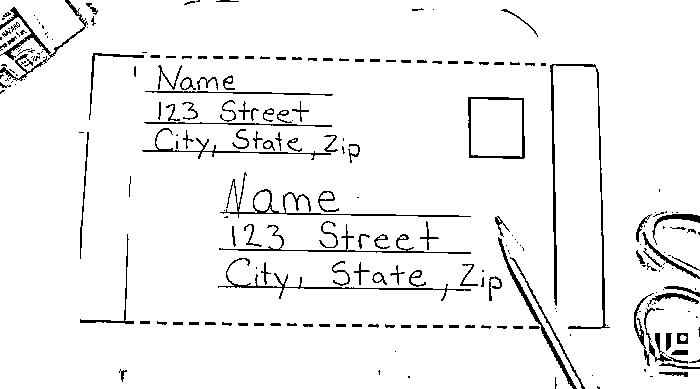 Name
123 Street
City, State, Zip
Name
123 Street
City, State, Zip